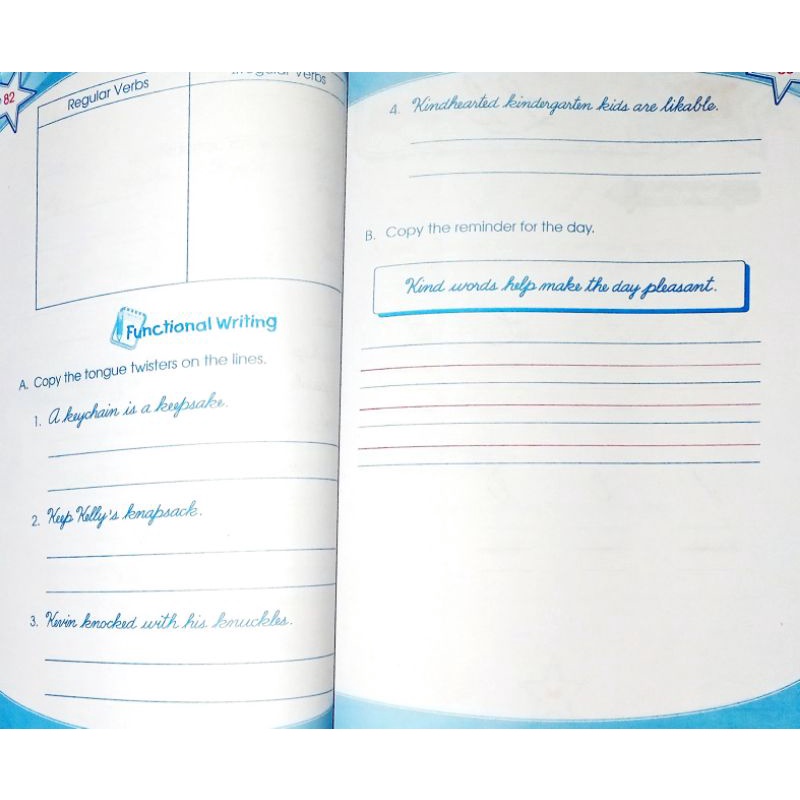 82
Regular Verbs
Irregular Verbs
Functional Writing
A. Copy the tongue twisters on the lines.
1. A keychain is a keepsake.
2. Keep Kelly's knapsack.
3. Kevin knocked with his knuckles.
4. Kindhearted kindergarten kids are likable.
B. Copy the reminder for the day.
Kind words help make the day pleasant.